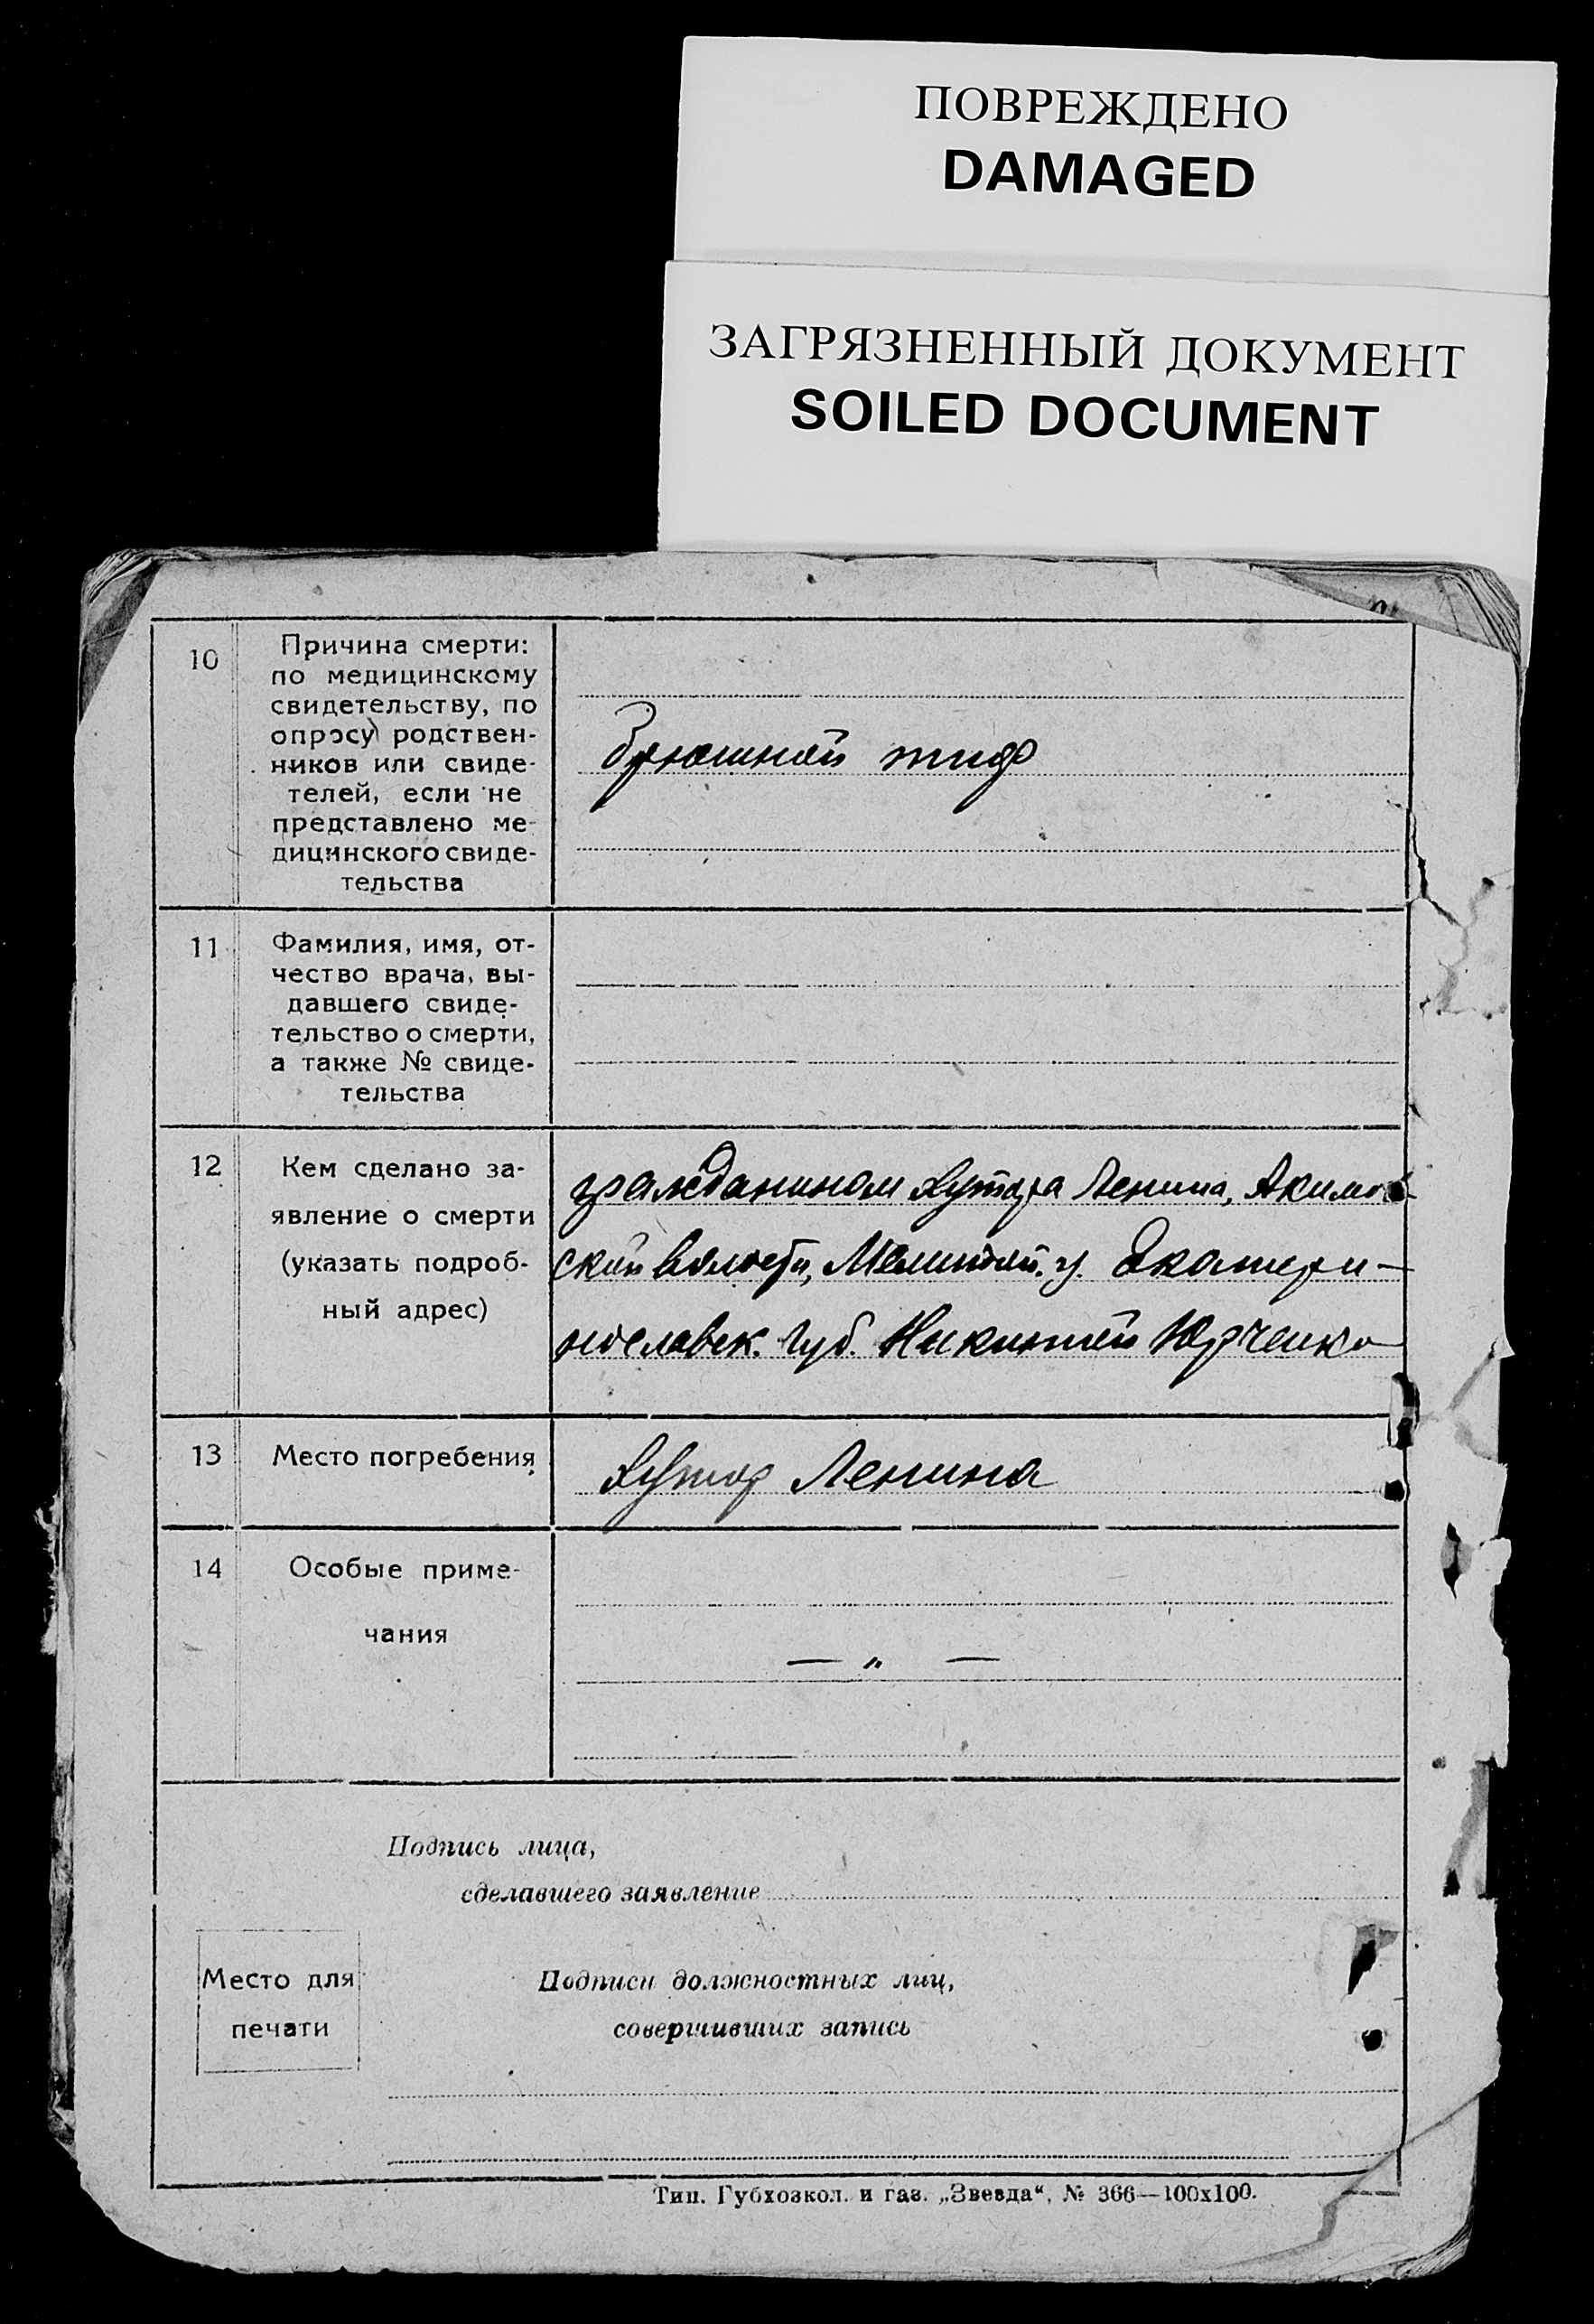 ПОВРЕЖДЕНО
DAMAGED
ЗАГРЯЗНЕННЫЙ ДОКУМЕНТ
SOILED DOCUMENT
10
Причина смерти:
по медицинскому
свидетельству, по
опросу родствен-
ников или свиде-
телей, если не
представлено ме-
дицинского свиде-
тельства
Брюшной тиф
11
Фамилия, имя, от-
чество врача, вы-
давшего свиде-
тельство о смерти,
а также № свиде-
тельства
12
Кем сделано за-
явление о смерти
(указать подроб-
ный адрес)
гражданином хутора Ленина, Акимов
ской волости, Мелитой. у. Екатери-
нославск. губ. Никитой Юрченко
13
Место погребения
Хутор Ленина
14
Особые приме-
чания
— „ —
Подпись лица,
сделавшего заявление
Место для
печати
Подписи должностных лиц,
совершивших запись
Тип. Губхозкол. и газ. „Звезда“, № 366—100х100.